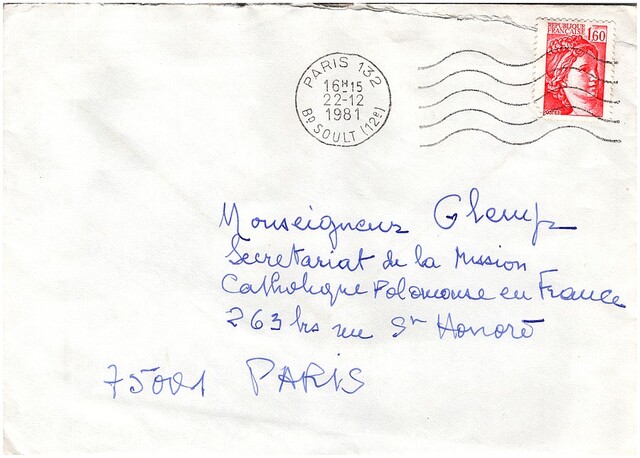 REPUBLIQUE
FRANÇAISE 1,60
PARIS 132
16H15
22-12
1981
Bd SOULT (12e)
Monseigneur Glemp
Secretariat de la Mission
Catholique Polonaise en France
263 bis rue St Honoré
75001 PARIS